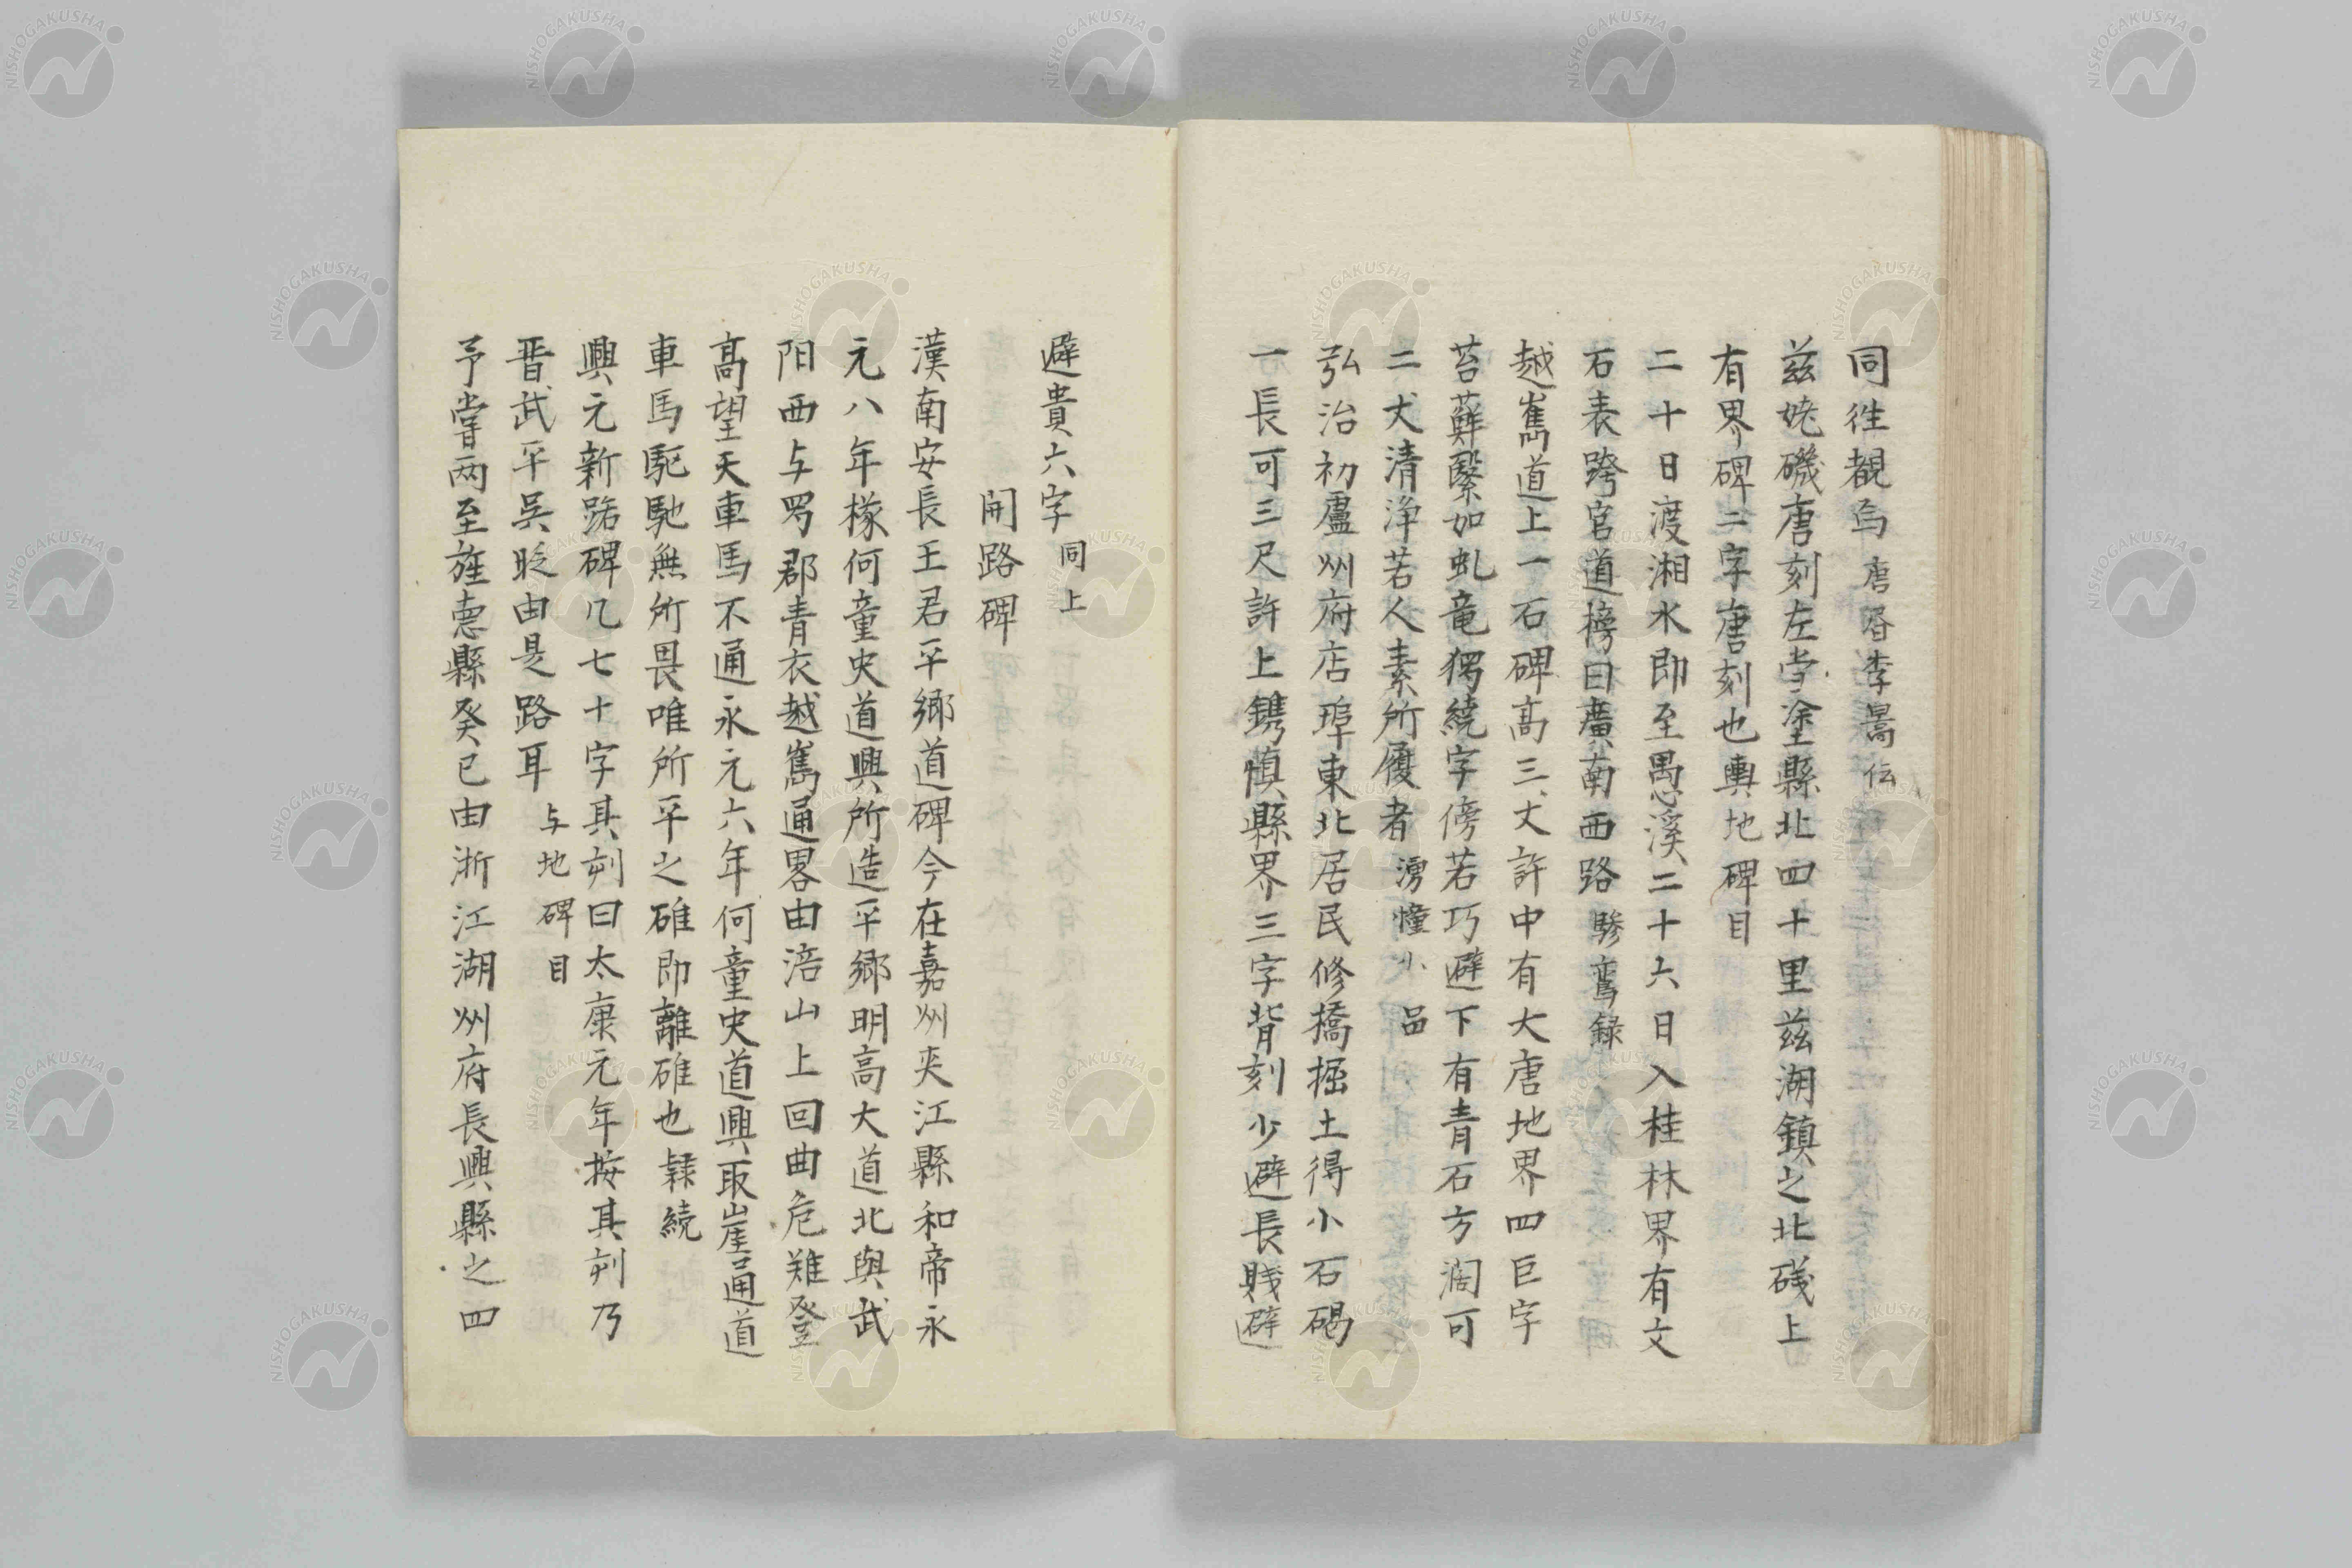 同徃覩焉 唐書李暠伝
兹姥磯唐刻左当塗縣北四十里兹湖鎮之北礒上
有界碑二字唐刻也輿地碑目
二十日渡湘水即至愚溪二十六日入桂林界有文
石表跨官道榜曰廣南西路 驂鸞録
越嶲道上一石碑高三丈許中有大唐地界四巨字
苔蘚繄如虬竜獨繞字傍若巧避下有青石方濶可
二丈清浄若人素所履者 湧幢小品
弘治初盧州府店埠東北居民修橋掘土得小石碣
一長可三尺許上鐫慎縣界三字背刻少避長賎避
避貴六字 同上
開路碑
漢南安長王君平鄉道碑今在嘉州夾江縣和帝永
元八年椽何童史道興所造平鄉明高大道北與武
阳西与蜀郡青衣越嶲通畧由涪山上回曲危难登
高望天車馬不通永元六年何童史道興取崖通道
車馬駝馳無所畏唯所平之碓即離碓也隸続
興元新路碑凡七十字其刻曰太康元年按其刻乃
晋武平呉眨由是路耳 与地碑目
予嘗两至旌悳縣癸已由浙江湖州府長興縣之四